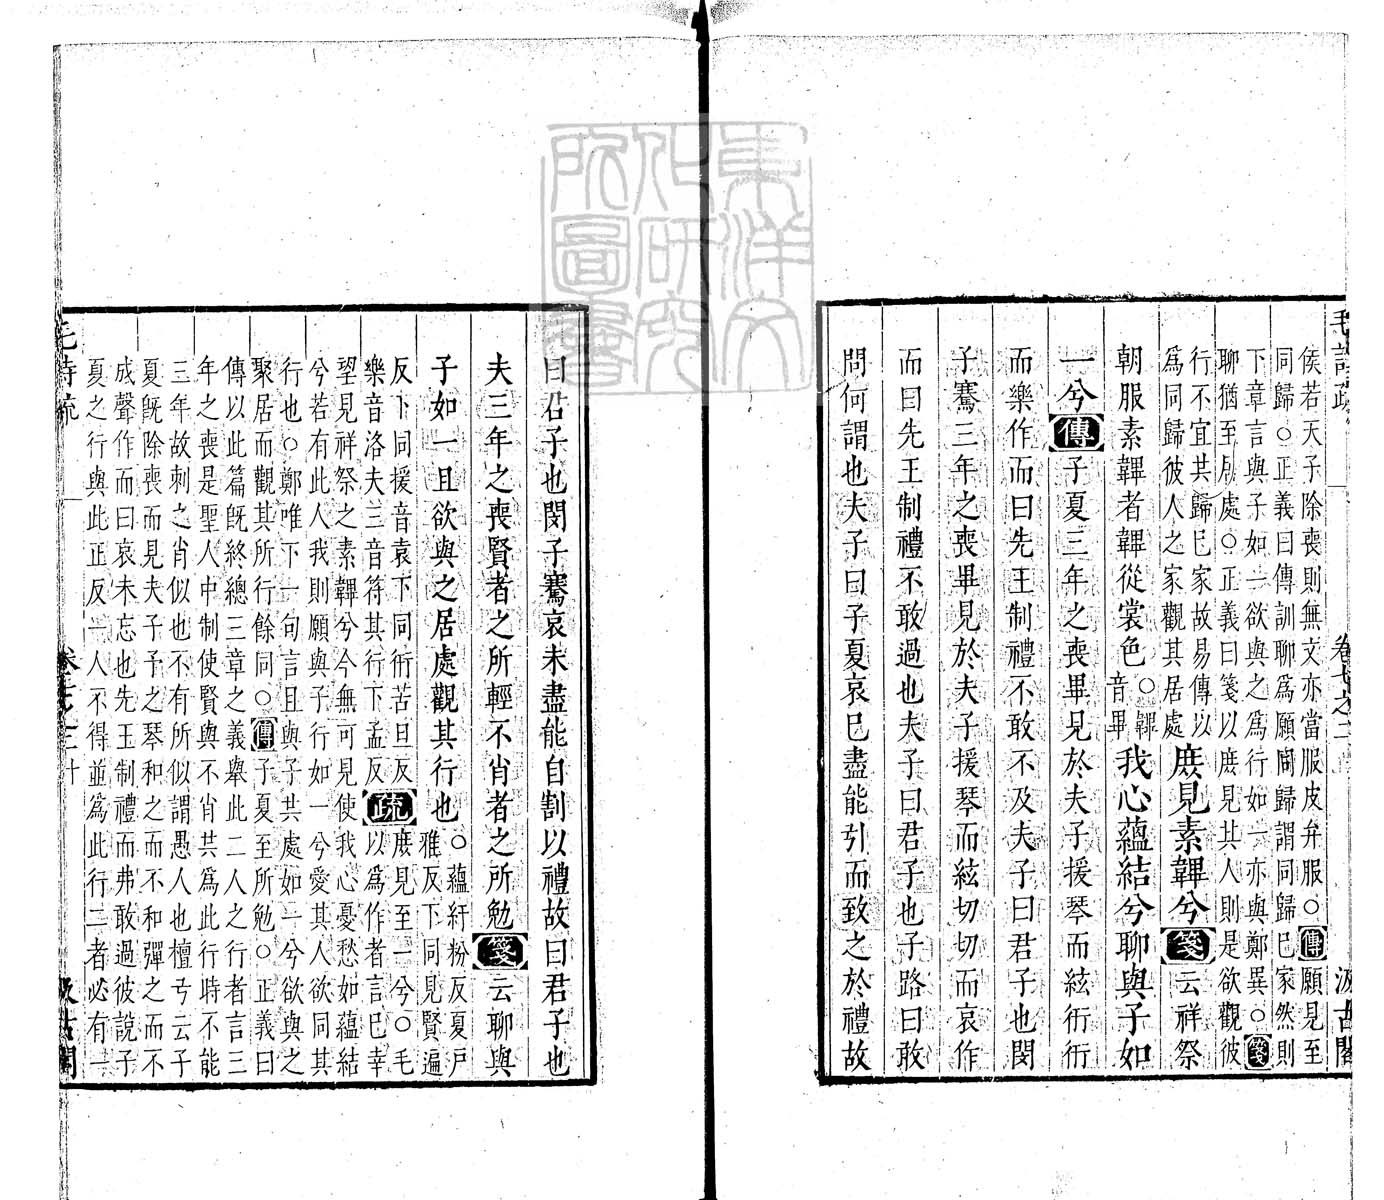 毛詩疏
卷七之二
汲古閣
侯若天子除喪則無文亦當服皮弁服○傳願見至
同歸○正義曰傳訓聊爲願同歸謂同歸已家然則
下章言與子如一欲與之爲行如一亦與鄭異○箋
聊猶至居處○正義曰箋以庶見其人則是欲觀彼
行不宜共歸已家故易傳以
爲同歸彼人之家觀其居處
庶見素韠兮箋云祥祭
朝服素韠者韠從裳色
○韠
音畢
我心蘊結兮聊與子如
一兮傳子夏三年之喪畢見於夫子援琴而絃衎衎
而樂作而曰先王制禮不敢不及夫子曰君子也閔
子騫三年之喪畢見於夫子援琴而絃切切而哀作
而曰先王制禮不敢過也夫子曰君子也子路曰敢
問何謂也夫子曰子夏哀已盡能引而致之於禮故
曰君子也閔子騫哀未盡能自割以禮故曰君子也
夫三年之喪賢者之所輕不肖者之所勉箋云聊與
子如一且欲與之居處觀其行也
○蘊紆粉反夏戶
雅反下同見賢遍
反下同援音袁下同衎苦旦反
樂音洛夫三音符其行下孟反
疏
庶見至一兮○毛
以爲作者言已幸
望見祥祭之素韠兮今無可見使我心憂愁如蘊結
兮若有此人我則願與子行如一兮愛其人欲同其
行也○鄭唯下一句言且與子共處如一兮欲與之
聚居而觀其所行餘同○傳子夏至所勉○正義曰
傳以此篇旣終總三章之義舉此二人之行者言三
年之喪是聖人中制使賢與不肖共爲此行時不能
三年故刺之肖似也不有所似謂愚人也檀弓云子
夏旣除喪而見夫子予之琴和之而不和彈之而不
成聲作而曰哀未忘也先王制禮而弗敢過彼說子
夏之行與此正反一人不得並爲此行二者必有一
毛詩疏
卷七之二
十
汲古閣
東洋文
化研究
所圖書